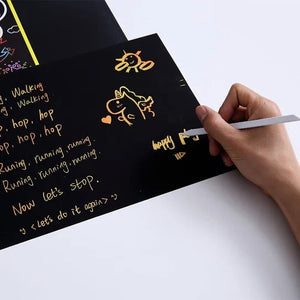 Walking
Walking
hop, hop
hop, hop
Runing, running, running.
Runing, running, running.
Now let's stop.
<let's do it again>
happy